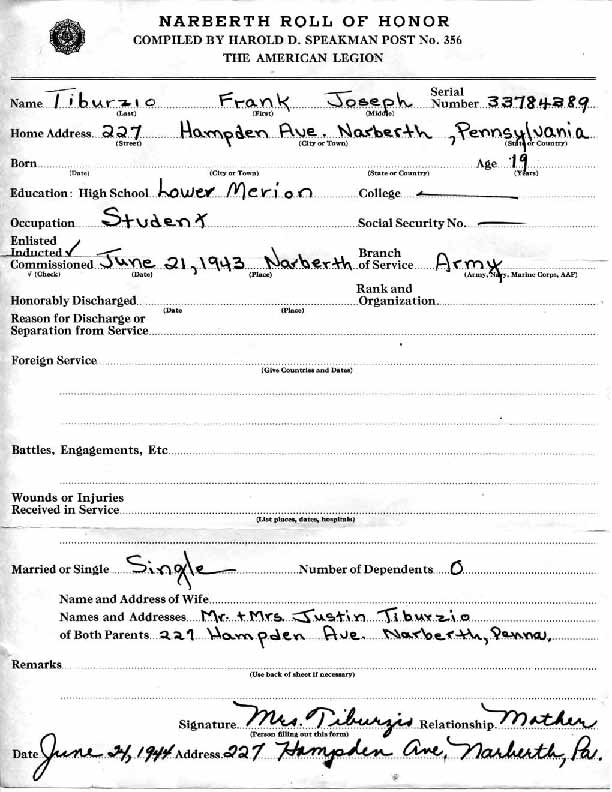 NARBERTH ROLL OF HONOR
COMPILED BY HAROLD D. SPEAKMAN POST No. 356
THE AMERICAN LEGION
Name Tiburzio Frank Joseph Serial Number 33784389
(Last) (First) (Middle)
Home Address 227 Hampden Ave. Narberth, Pennsylvania
(Street) (City or Town) (State or Country)
Born Age 19
(Date) (City or Town) (State or Country) (Years)
Education: High School Lower Merion College —
Occupation Student Social Security No. —
Enlisted
Inducted ✓ Branch
Commissioned June 21, 1943 Narberth of Service Army
√ (Check) (Date) (Place) (Army, Navy, Marine Corps, AAF)
Rank and
Honorably Discharged Organization
(Date (Place)
Reason for Discharge or
Separation from Service
Foreign Service
(Give Countries and Dates)
Battles, Engagements, Etc
Wounds or Injuries
Received in Service
(List places, dates, hospitals)
Married or Single Single Number of Dependents 0
Name and Address of Wife
Names and Addresses Mr. + Mrs. Justin Tiburzio
of Both Parents 227 Hampden Ave. Narberth, Penna.
Remarks
(Use back of sheet if necessary)
Signature Mrs. Tiburzio Relationship Mother
(Person filling out this form)
Date June 24, 1944 Address 227 Hampden Ave, Narberth, Pa.